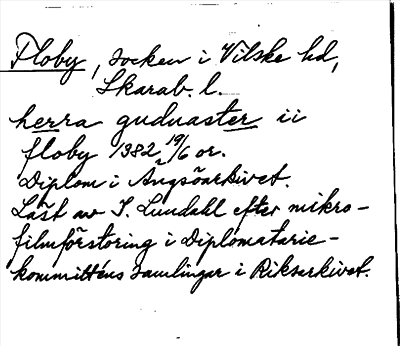 Floby, socken i Vilske hd,
Skarab. l.
herra gudnaster ii
floby 1382 19/6 or.
Diplom i Ängsöarkivet.
Läst av I. Lundahl efter mikro-
filmförstoring i Diplomatarie-
kommitténs samlingar i Riksarkivet.